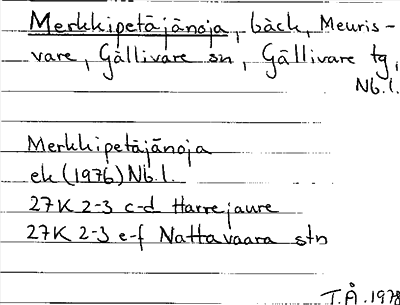 Merkkipetäjänoja, bäck, Meuris-
vare, Gällivare sn, Gällivare tg,
Nb.l.
Merkkipetäjänoja
ek (1976) Nb.l.
27K 2-3 c-d Harrejaure
27K 2-3 e-f Nattavaara stn
T.Å. 1978